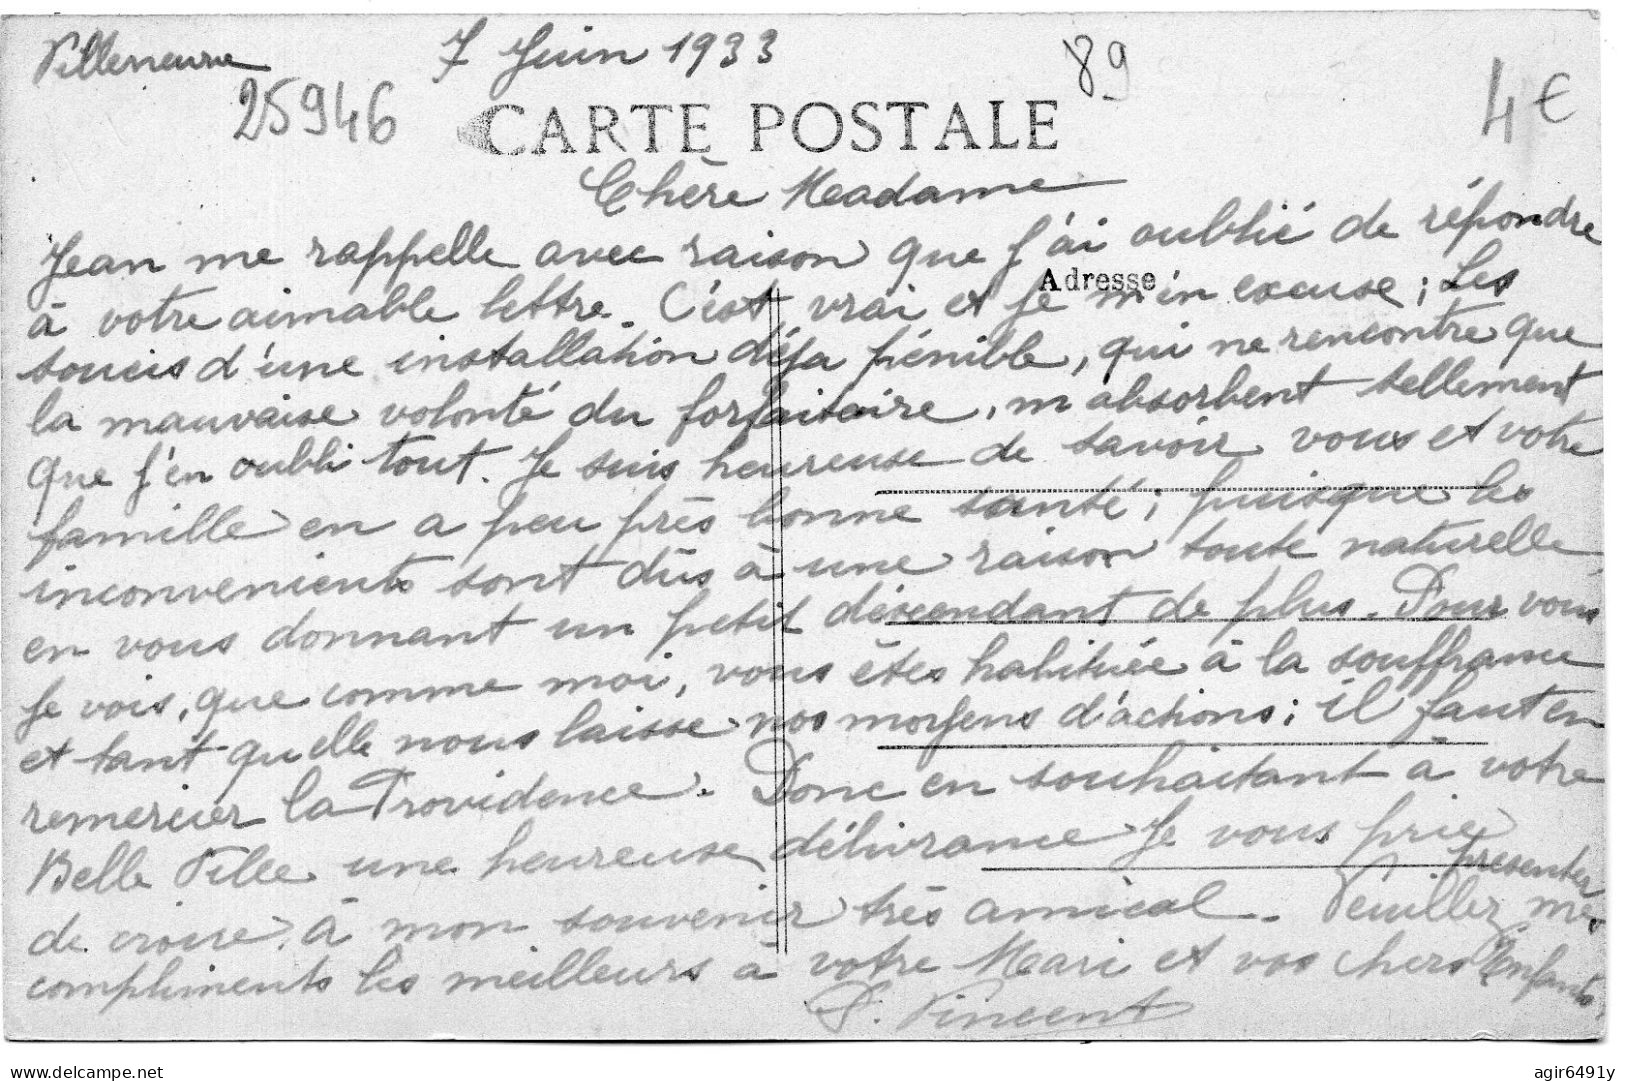 Villeneuve 7 Juin 1933 89
25946 4€
CARTE POSTALE
Chère Madame
Jean me rappelle avec raison que j'ai oublié de répondre
Adresse
à votre aimable lettre. C'est vrai et je m'en excuse ; Les
soucis d'une installation déja pénible, qui ne rencontre que
la mauvaise volonté du forfaitaire, m'absorbent tellement
que j'en oubli tout. Je suis heureuse de savoir vous et votre
famille en a peu près bonne santé ; puisque les
inconvenients sont dûs à une raison toute naturelle,
en vous donnant un petit descendant de plus. Pour vous
je vois, que comme moi, vous êtes habituée à la souffrance
et tant qu'elle nous laisse nos moyens d'actions ; il faut en
remercier la Providence. Donc en souhaitant à votre
Belle Fille une heureuse délivrance Je vous prie
de croire à mon souvenir très amical. Veuillez présenter mes
compliments les meilleurs à votre Mari et vos chers Enfants.
P. Vincent
delcampe.net
agir6491y